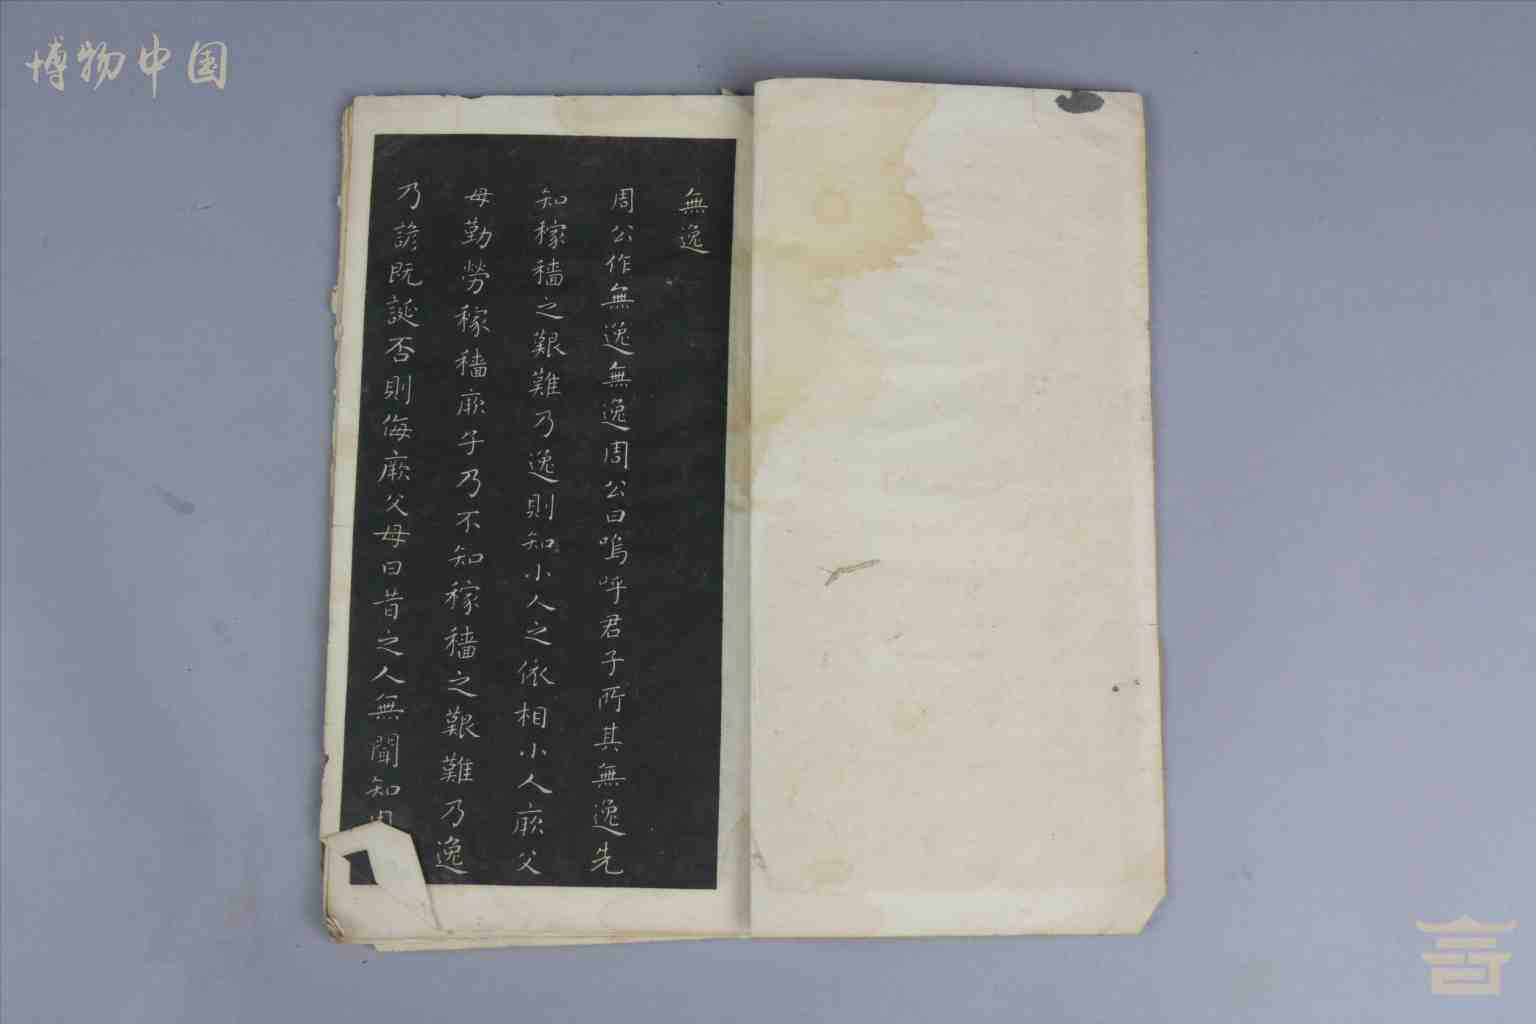 博物中国
無逸
周公作無逸無逸周公曰嗚呼君子所其無逸先
知稼穡之艱難乃逸則知小人之依相小人厥父
母勤勞稼穡厥子乃不知稼穡之艱難乃逸
乃諺既誕否則侮厥父母曰昔之人無聞知周